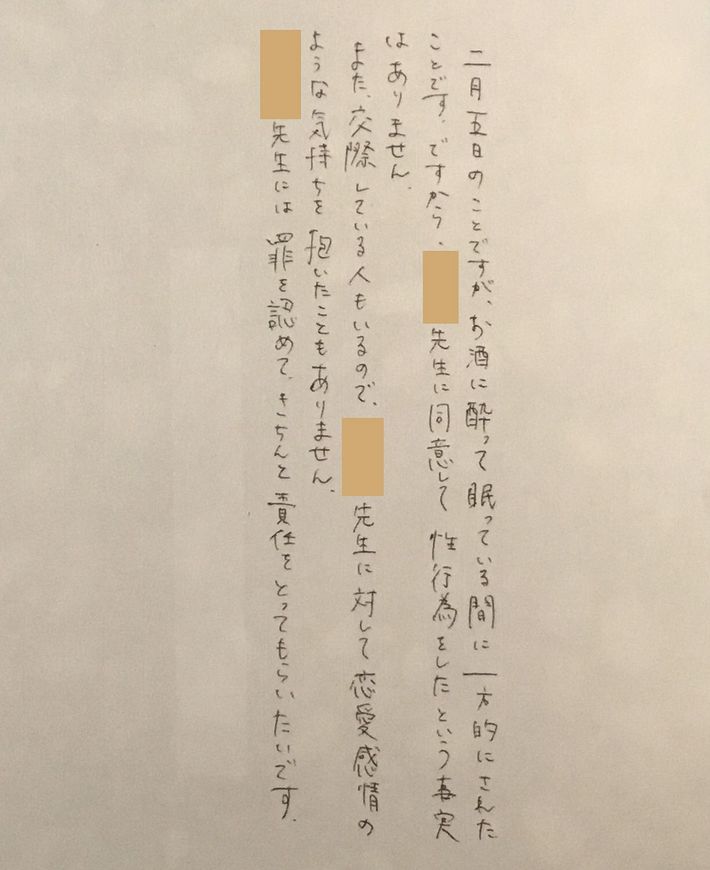 二月五日のことですが、お酒に酔って眠っている間に一方的にされた
ことです。ですから、先生に同意して性行為をしたという事実
はありません。
また、交際している人もいるので、先生に対して恋愛感情の
ような気持ちを抱いたこともありません。
先生には罪を認めて、きちんと責任をとってもらいたいです。